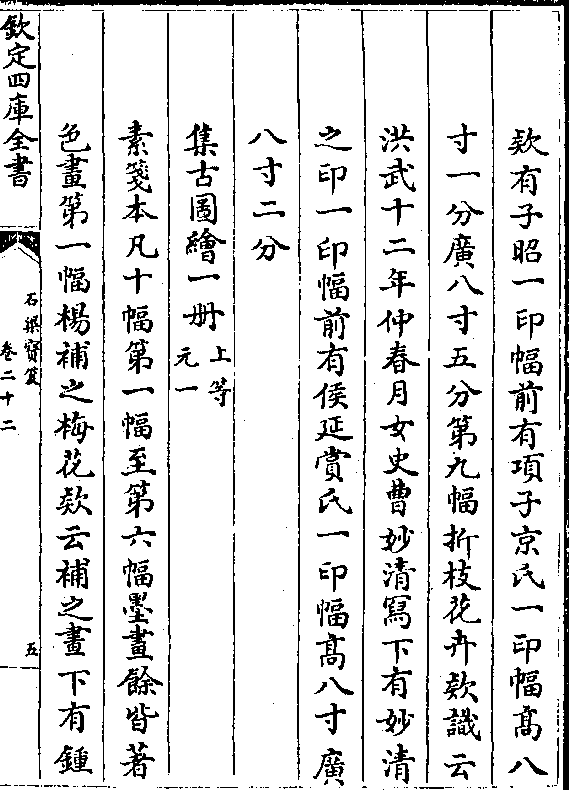 欵有子昭一印幅前有項子京氏一印幅髙八
寸一分廣八寸五分第九幅折枝花卉欵識云
洪武十二年仲春月女史曹妙清寫下有妙清
之印一印幅前有侯延賞氏一印幅髙八寸廣
八寸二分
集古圖繪一册 上等 元一
素箋本凡十幅第一幅至第六幅墨畫餘皆著
色畫第一幅楊補之梅花欵云補之畫下有鍾
欽定四庫全書
石渠寳笈
卷二十二
五